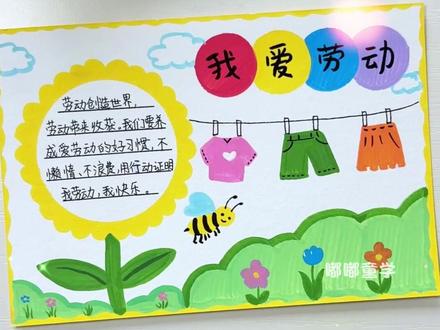 我爱劳动
劳动创造世界,
劳动带来收获。我们要养
成爱劳动的好习惯,不
懒惰、不浪费,用行动证明
我劳动,我快乐。
嘟嘟童学